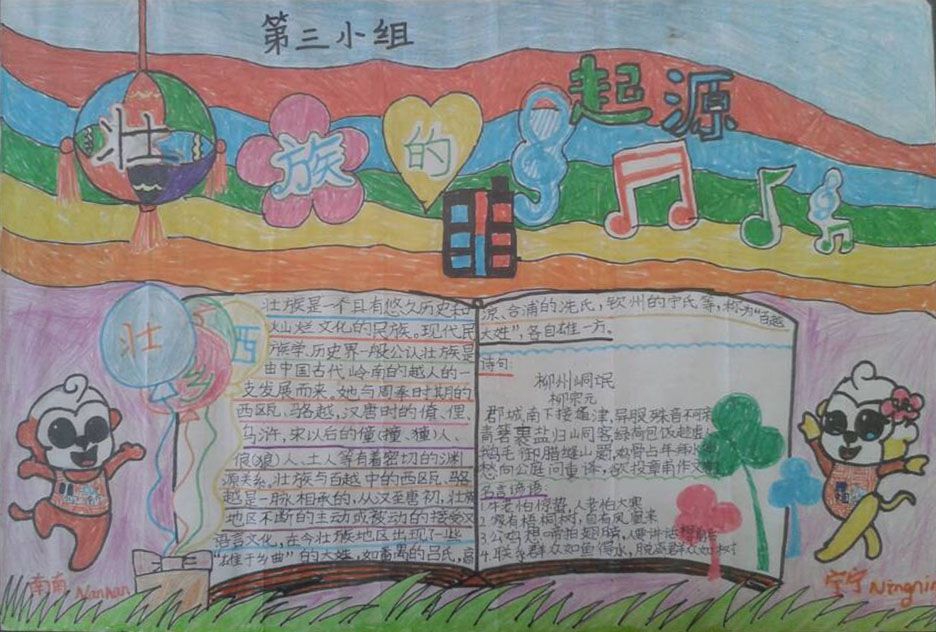 第三小组
壮族的起源
壮
西
壮族是一个具有悠久历史和
灿烂文化的民族。现代民
族学、历史界一般公认壮族是
由中国古代岭南的越人的一
支发展而来。她与周秦时期的
西瓯、骆越,汉唐时的僮、俚、
乌浒,宋以后的僮(撞、獞)人、
俍(狼)人、土人等有着密切的渊
源关系。壮族与百越中的西瓯、骆
越是一脉相承的,从汉至唐初,壮族
地区不断的主动或被动的接受汉
语言文化,在今壮族地区出现了一些
“雄于乡曲”的大姓,如南
的吕氏,高
凉、合浦的冼氏,钦州的宁氏等,称为“百越
大姓”,各自雄一方。
诗句:
柳州峒氓
柳宗元
郡城南下接通津,异服殊音不可
青箬裹盐归山峒客,绿荷包饭趁虚
鹅毛御腊缝山罽,鸡骨占年拜水
愁向公庭问重译,欲投章甫作文
名言谚语:
1.牛老怕惊蛰,人老怕大寒
2.家有梧桐树,自有凤凰来
3.公鸡想啼拍翅膀,人要讲话想
4.联系群众如鱼得水,脱离群众如树
南南 Nannan
宁宁 Ningnin